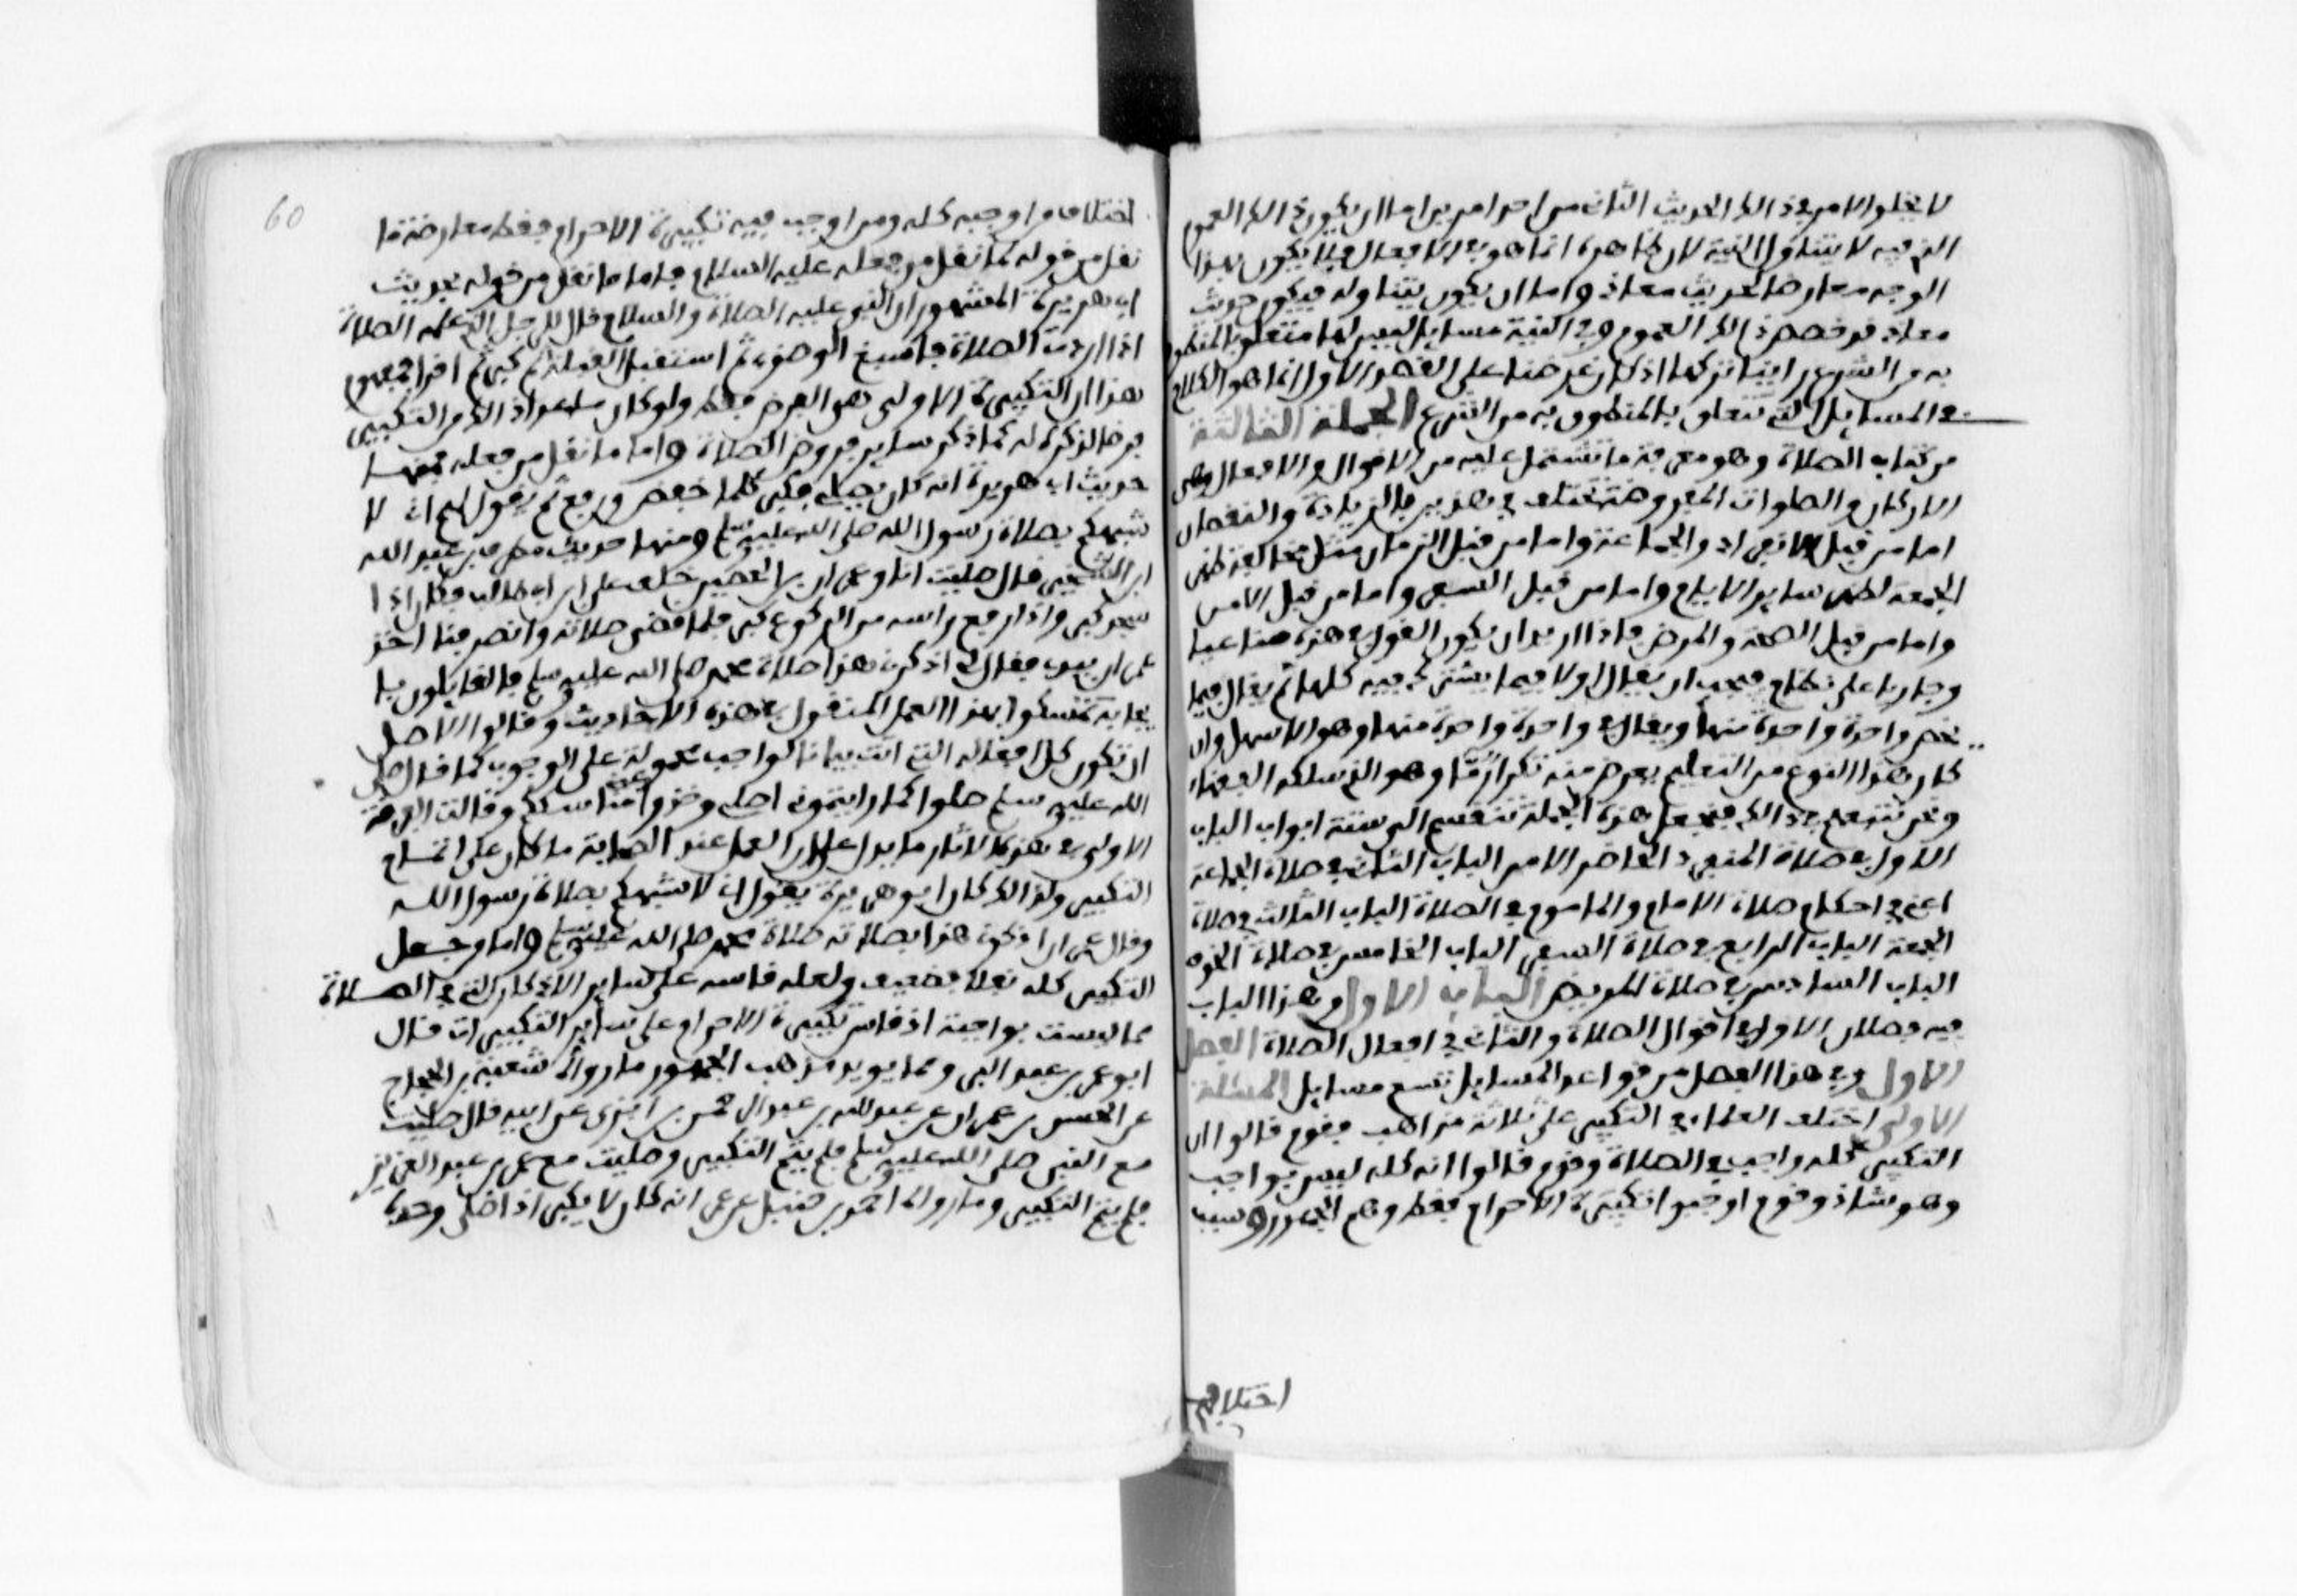 لا يخلو الامر في ذالك الحديث الثاني من احد امرين اما ان يكون ذالك العموم
الذي فيه لا يتناول النية لان ظاهره انما هو في الافعال فلا يكون بهذا
الوجه معارضا لحديث معاذ واما ان يكون يتناوله فيكون حديث
معاذ قد خصص ذالك العموم وفي النية مسايل ليس لها متعلق بالمنطوق
به من الشرع راينا تركها اذ كان غرضنا على القصد الاول انما هو الكلام
في المسايل التي تتعلق بالمنطوق به من الشرع الجملة الثالثة
من كتاب الصلاة وهو معرفة ما تشتمل عليه من الاقوال والافعال وهي
الاركان والصلوات المفروضة تختلف في هذين بالزيادة والنقصان
اما من قبل الانفراد والجماعة واما من قبل الزمان مثل مخالفة ظهر
الجمعة لظهر ساير الايام واما من قبل السفر واما من قبل الامن
واما من قبل الصحة والمرض فاذا اريد ان يكون القول في هذه صناعيا
وجاريا على نظام فيجب ان يقال اولا فيما يشترك فيه كلها ثم يقال فيما
يخص واحدة واحدة منها ويقال في واحدة واحدة منها وهو الاسهل وان
كان هذا النوع من التعليم يعرض منه تكرار ما وهو الذي سلكه الفقهاء
ونحن نتبعهم في ذالك فنجعل هذه الجملة تنقسم الى ستة ابواب الباب
الاول في صلاة المنفرد الحاضر الامن الباب الثاني في صلاة الجماعة
اعني في احكام صلاة الامام والماموم في الصلاة الباب الثالث في صلاة
الجمعة الباب الرابع في صلاة السفر الباب الخامس في صلاة الخوف
الباب السادس في صلاة المريض الباب الاول وهذا الباب
فيه فصلان الاول في اقوال الصلاة والثاني في افعال الصلاة الفصل
الاول وفي هذا الفصل من قواعد المسايل تسع مسايل المسئلة
الاولى اختلف العلماء في التكبير على ثلاثة مذاهب فقوم قالوا ان
التكبير كله واجب في الصلاة وقوم قالوا انه كله ليس بواجب
وهو شاذ وقوم اوجبوا تكبيرة الاحرام فقط وهم الجمهور وسبب
اختلافهم
60
اختلاف من اوجبه كله ومن اوجب فيه تكبيرة الاحرام فقط معارضة ما
نقل من قوله لما نقل من فعله عليه السلام فاما ما نقل من قوله فحديث
ابي هريرة المشهور ان النبي عليه الصلاة والسلام قال للرجل الذي علمه الصلاة
اذا اردت الصلاة فاسبغ الوضوء ثم استقبل القبلة ثم كبر ثم اقرا فمفهوم
هذا ان التكبيرة الاولى هو الفرض فقط ولو كان ما عدا ذالك من التكبير
فرضا لذكره له كما ذكر ساير فروض الصلاة واما ما نقل من فعله فمنها
حديث ابي هريرة انه كان يصلي فيكبر كلما خفض ورفع ثم يقول اني لا
شبهكم بصلاة رسول الله صلى الله عليه وسلم ومنها حديث مطرف بن عبد الله
ابن الشخير قال صليت انا وعمران بن الحصين خلف علي ابن ابي طالب فكان اذا
سجد كبر واذا رفع راسه من الركوع كبر فلما قضى صلاته وانصرفنا اخذ
عمران بيدي فقال لي اذكرني هذا صلاة محمد صلى الله عليه وسلم فالقايلون با
يجابه تمسكوا بهذا العمل المنقول في هذه الاحاديث وقالوا الاصل
ان تكون كل افعاله التي اتت بيانا لواجب محمولة على الوجوب كما قال صلى
الله عليه وسلم صلوا كما رايتموني اصلي وخذوا عني مناسككم وقالت الفرقة
الاولى في هذه الاثار ما يدل على ان العمل عند الصحابة ما كان على اتمام
التكبير ولذالك كان ابو هريرة يقول اني لا شبهكم بصلاة رسول الله
وقال عمران اذكرني هذا بصلاته صلاة محمد صلى الله عليه وسلم واما وجعل
التكبير كله نفلا فضعيف ولعله قاسه على ساير الاذكار التي في الصلاة
مما ليست بواجبة اذ قاس تكبيرة الاحرام على ساير التكبيرات قال
ابو عمر بن عبد البر ومما يويد مذهب الجمهور ما رواه شعبة بن الحجاج
عن الحسن بن عمران عن عبد الله بن عبد الرحمن بن ابزى عن ابيه قال صليت
مع النبي صلى الله عليه وسلم فلم يتم التكبير وصليت مع عمر بن عبد العزيز
فلم يتم التكبير وما رواه احمد بن حنبل عن عمر انه كان لا يكبر اذا صلى وحده